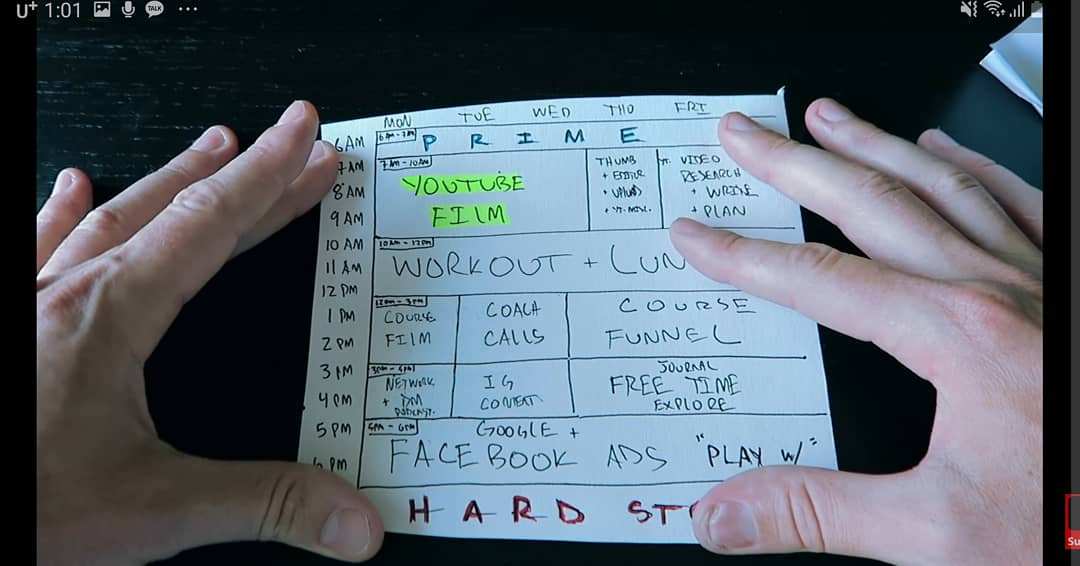 U+ 1:01 TALK ...
MON TUE WED THU FRI
6 AM 6AM - 7AM PRIME
7 AM 7AM - 10AM
8 AM
9 AM
YOUTUBE
FILM
THUMB
+ EDITUR
+ UPLOAD
YT. VIDEO
RESEARCH
+ WRITE
+ PLAN
10 AM 10AM - 12PM
11 AM WORKOUT + LUN
12 PM
12PM - 3PM
1 PM COURSE
2 PM FILM
COACH
CALLS
COURSE
FUNNEL
3 PM 3PM - 5PM
4 PM
NETWORK
+ DM
PODCAST.
IG
CONTENT
JOURNAL
FREE TIME
EXPLORE
5 PM 5PM - 6PM GOOGLE +
PM FACEBOOK ADS "PLAY W/"
HARD ST
Su